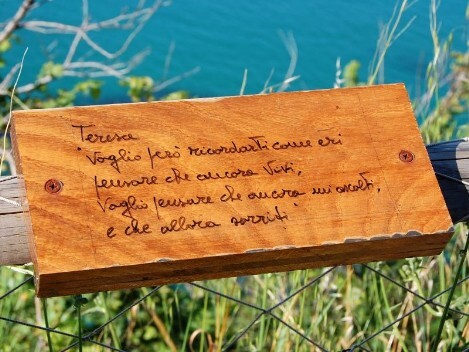 Teresa
"Voglio però ricordarti come eri
pensare che ancora Vivi,
Voglio pensare che ancora mi ascolti,
e che allora sorridi"